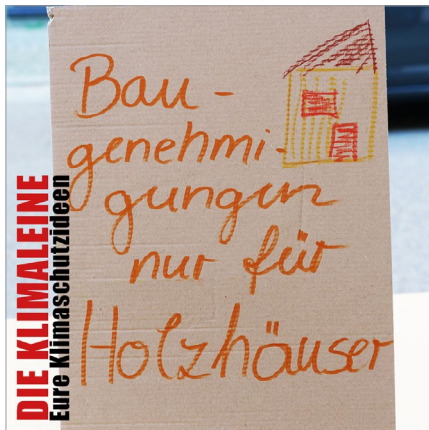 Bau-
genehmi-
gungen
nur für
Holzhäuser
DIE KLIMALEINE
Eure Klimaschutzideen